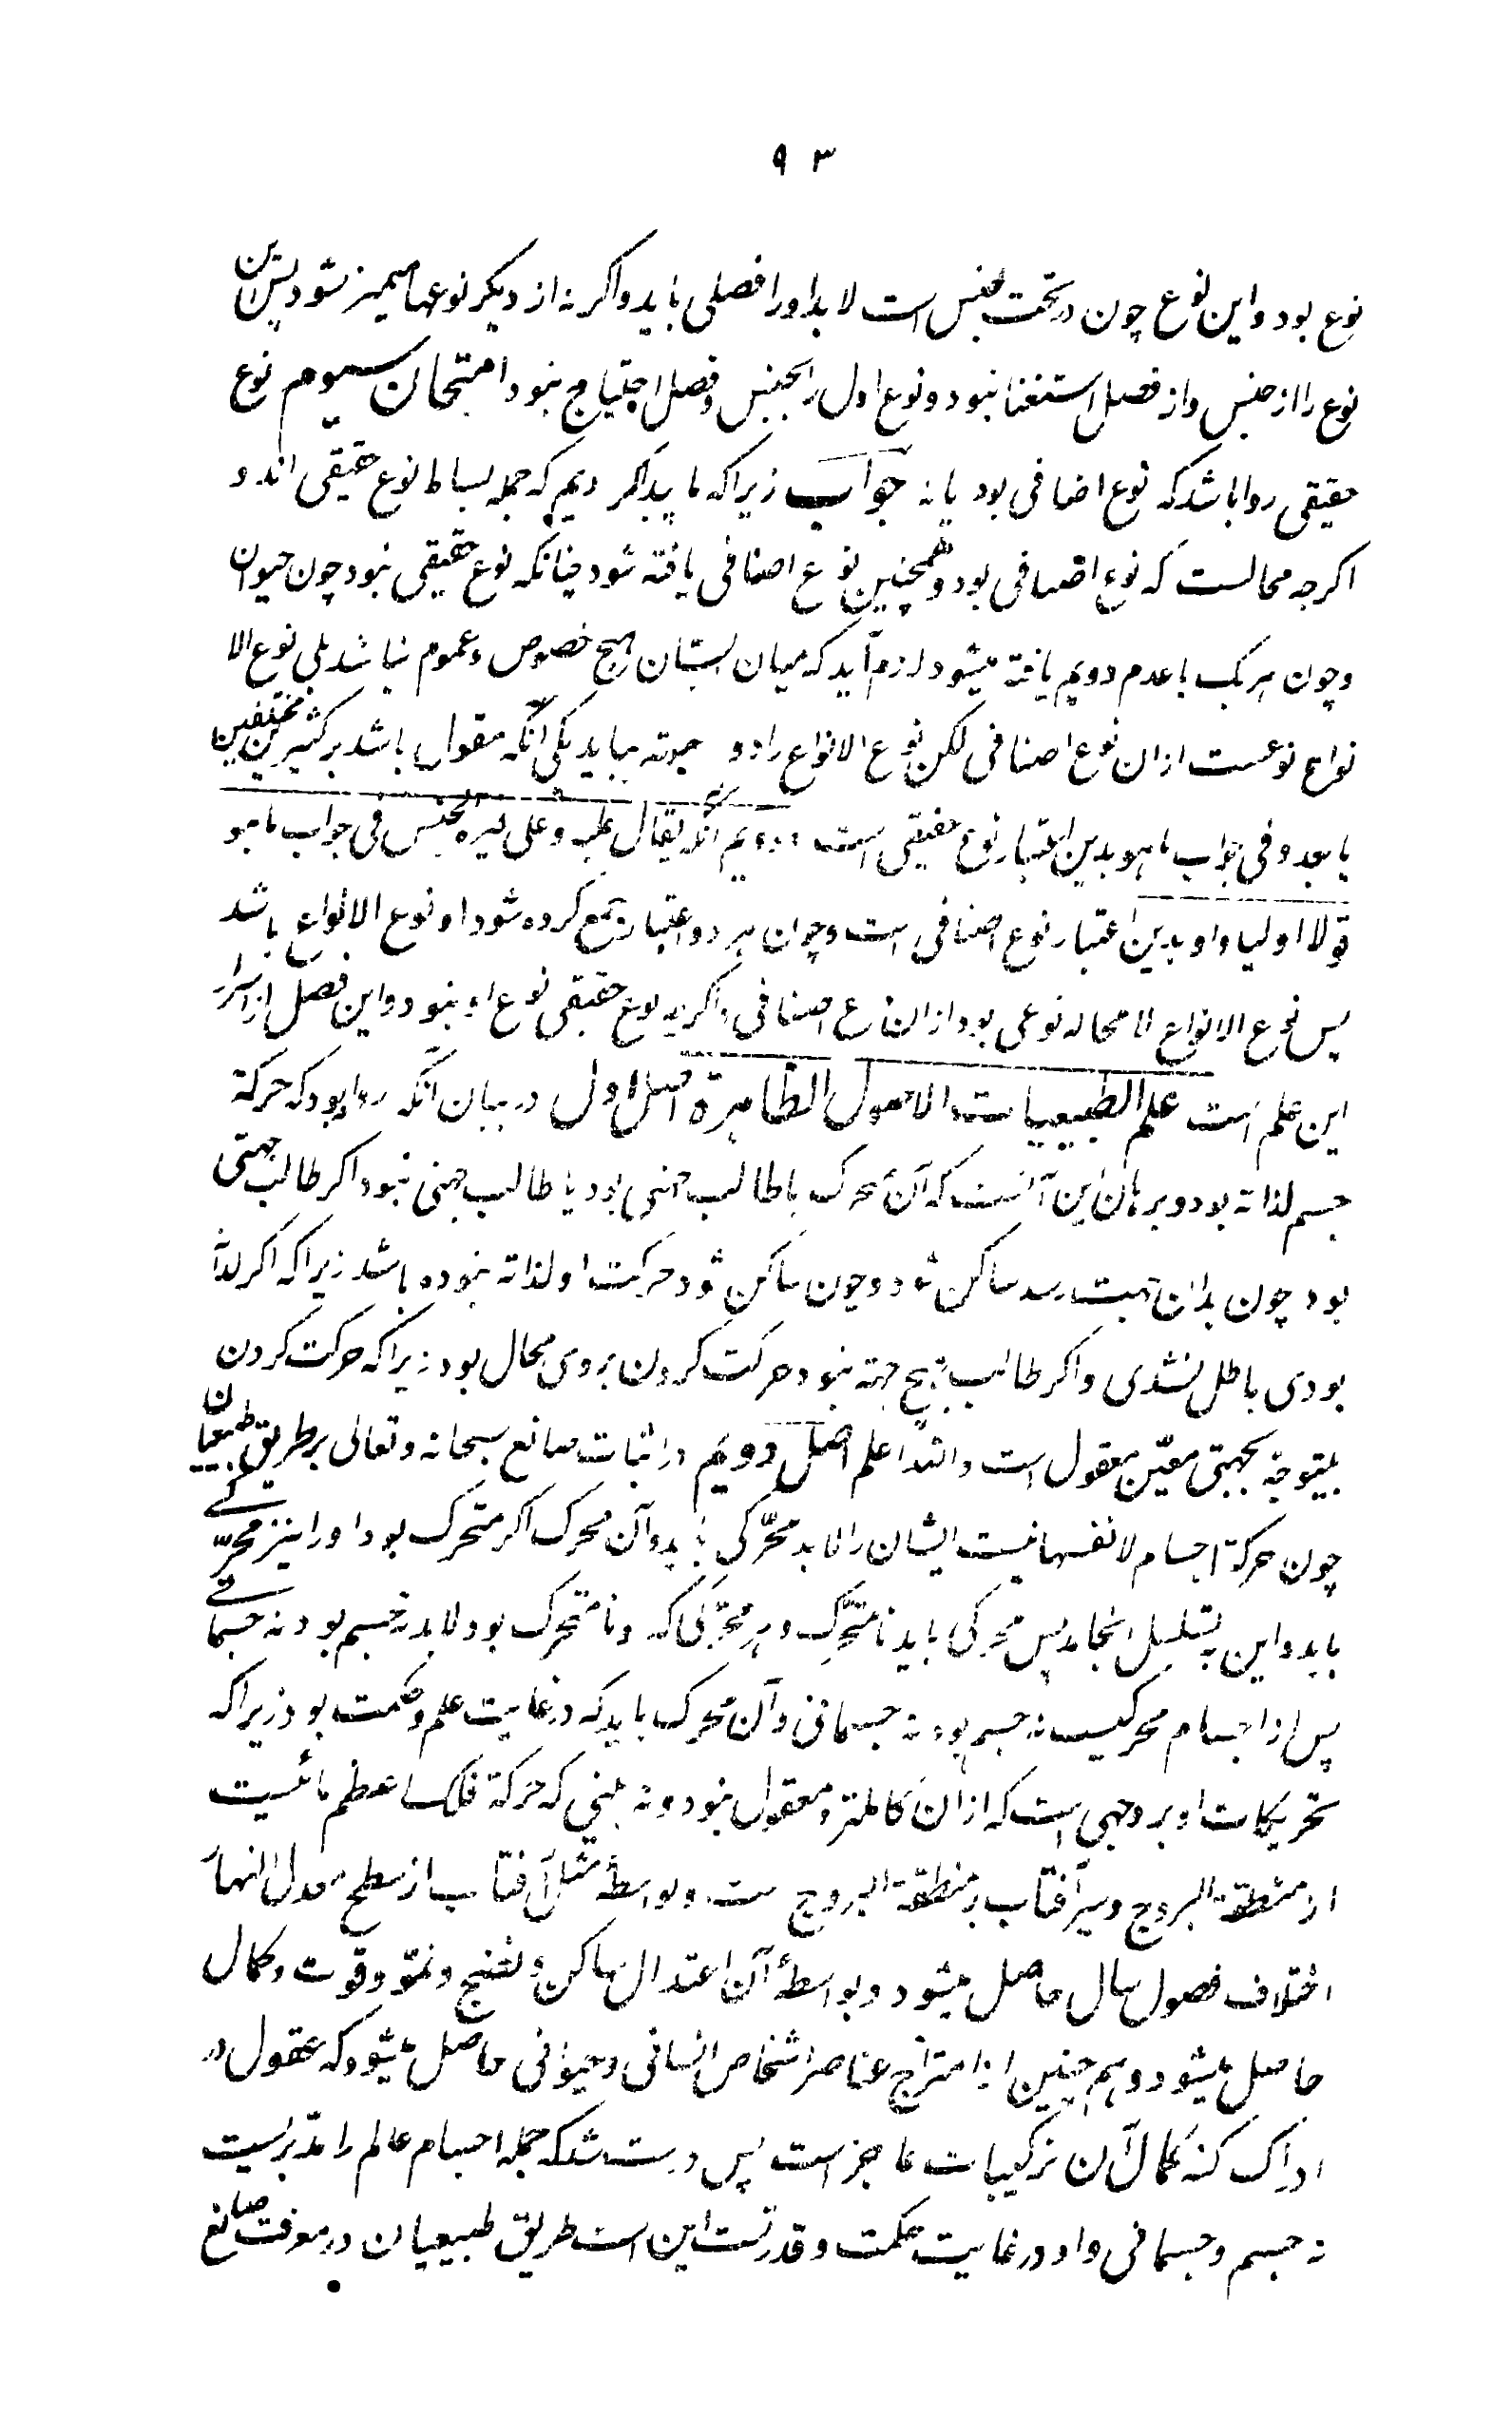 ۹۳
نوع بود و این نوع چون در تحت جنس است لابد اورا فصلی باید و اکر نه از دیکر نوعها ممیز نشود پس این
نوع را از جنس و از فصل استغنا نبود و نوع اول را بجنس و فصل احتیاج نبود امتحان سیوم نوع
حقیقی روا باشد که نوع اضافی بود یا نه جواب زیرا که ما پیدا کردیم که جمله بسائط نوع حقیقی اند و
اکرچه محالست که نوع اضافی بود و همچنین نوع اضافی یافته شود چنانکه نوع حقیقی نبود چون حیوان
و چون هریک با عدم دویم یافته میشود لازم آید که میان ایشان هیچ خصوص و عموم نباشد بلی نوع الا
نواع نوعست ازان نوع اضافی لکن نوع الانواع را دو جهته بباید یکی آنکه مقول باشد بر کثیرین مختلفین
با بعد و فی جواب ما هو بدین اعتبار نوع حقیقی است دویم آنکه یقال علیه و علی غیره الجنس فی جواب ما هو
قولا اولیا و او بدین اعتبار نوع اضافی است و چون هر دو اعتبار جمع کرده شود او نوع الانواع باشد
پس نوع الانواع لا محاله نوعی بود ازان نوع اضافی و اکرچه نوع حقیقی نوع او نبود و این فصل از اسرار
این علم است علم الطبیعیات الاصول الظاهرة اصل اول در بیان آنکه روا بود که حرکة
جسم لذاته بود و برهان این آنست که آن متحرک یا طالب جهتی بود یا طالب جهتی نبود اکر طالب جهتی
بود چون بدان جهت رسد ساکن شود و چون ساکن شود حرکت او لذاته نبوده باشد زیرا که اکر لذاته
بودی باطل نشدی و اکر طالب هیچ جهته نبود حرکت کردن بر وی محال بود زیرا که حرکت کردن
بیتوجه بجهتی معیّن معقول است والله اعلم اصل دویم در اثبات صانع سبحانه و تعالی بر طریق طبیعیان
چون حرکة اجسام لانفسها نیست ایشان را لابد محرّکی باید و آن محرک اکر متحرک بود او را نیز محرّکی
باید و این بتسلسل انجامد پس محرکی باید نا متحرّک و هر محرّکی که نا متحرک بود لابد نه جسم بود نه جسمانی
پس از اجسام محرکیست نه جسم بود نه جسمانی و آن محرک باید که در غایت علم و حکمت بود زیرا که
تحریکات او بر وجهی است که ازان کاملتر معقول نبود و نه بینی که حرکة فلک اعظم مائلست
از منطقة البروج و سیر آفتاب بر منطقة البروج ست و بواسطهٔ میل آفتاب از سطح معدل النهار
اختلاف فصول سال حاصل میشود و بواسطهٔ آن اعتدال مساکن و نضج و نموّ و قوت و کمال
حاصل میشود و هم چنین از امتزاج عناصر اشخاص انسانی و حیوانی حاصل میشود که عقول در
ادراک کنه کمال آن ترکیبات عاجز است پس درست شد که جمله اجسام عالم را مدّبریست
نه جسم و جسمانی و او در غایت حکمت و قدرتست این است طریق طبیعیان در معرفت صانع